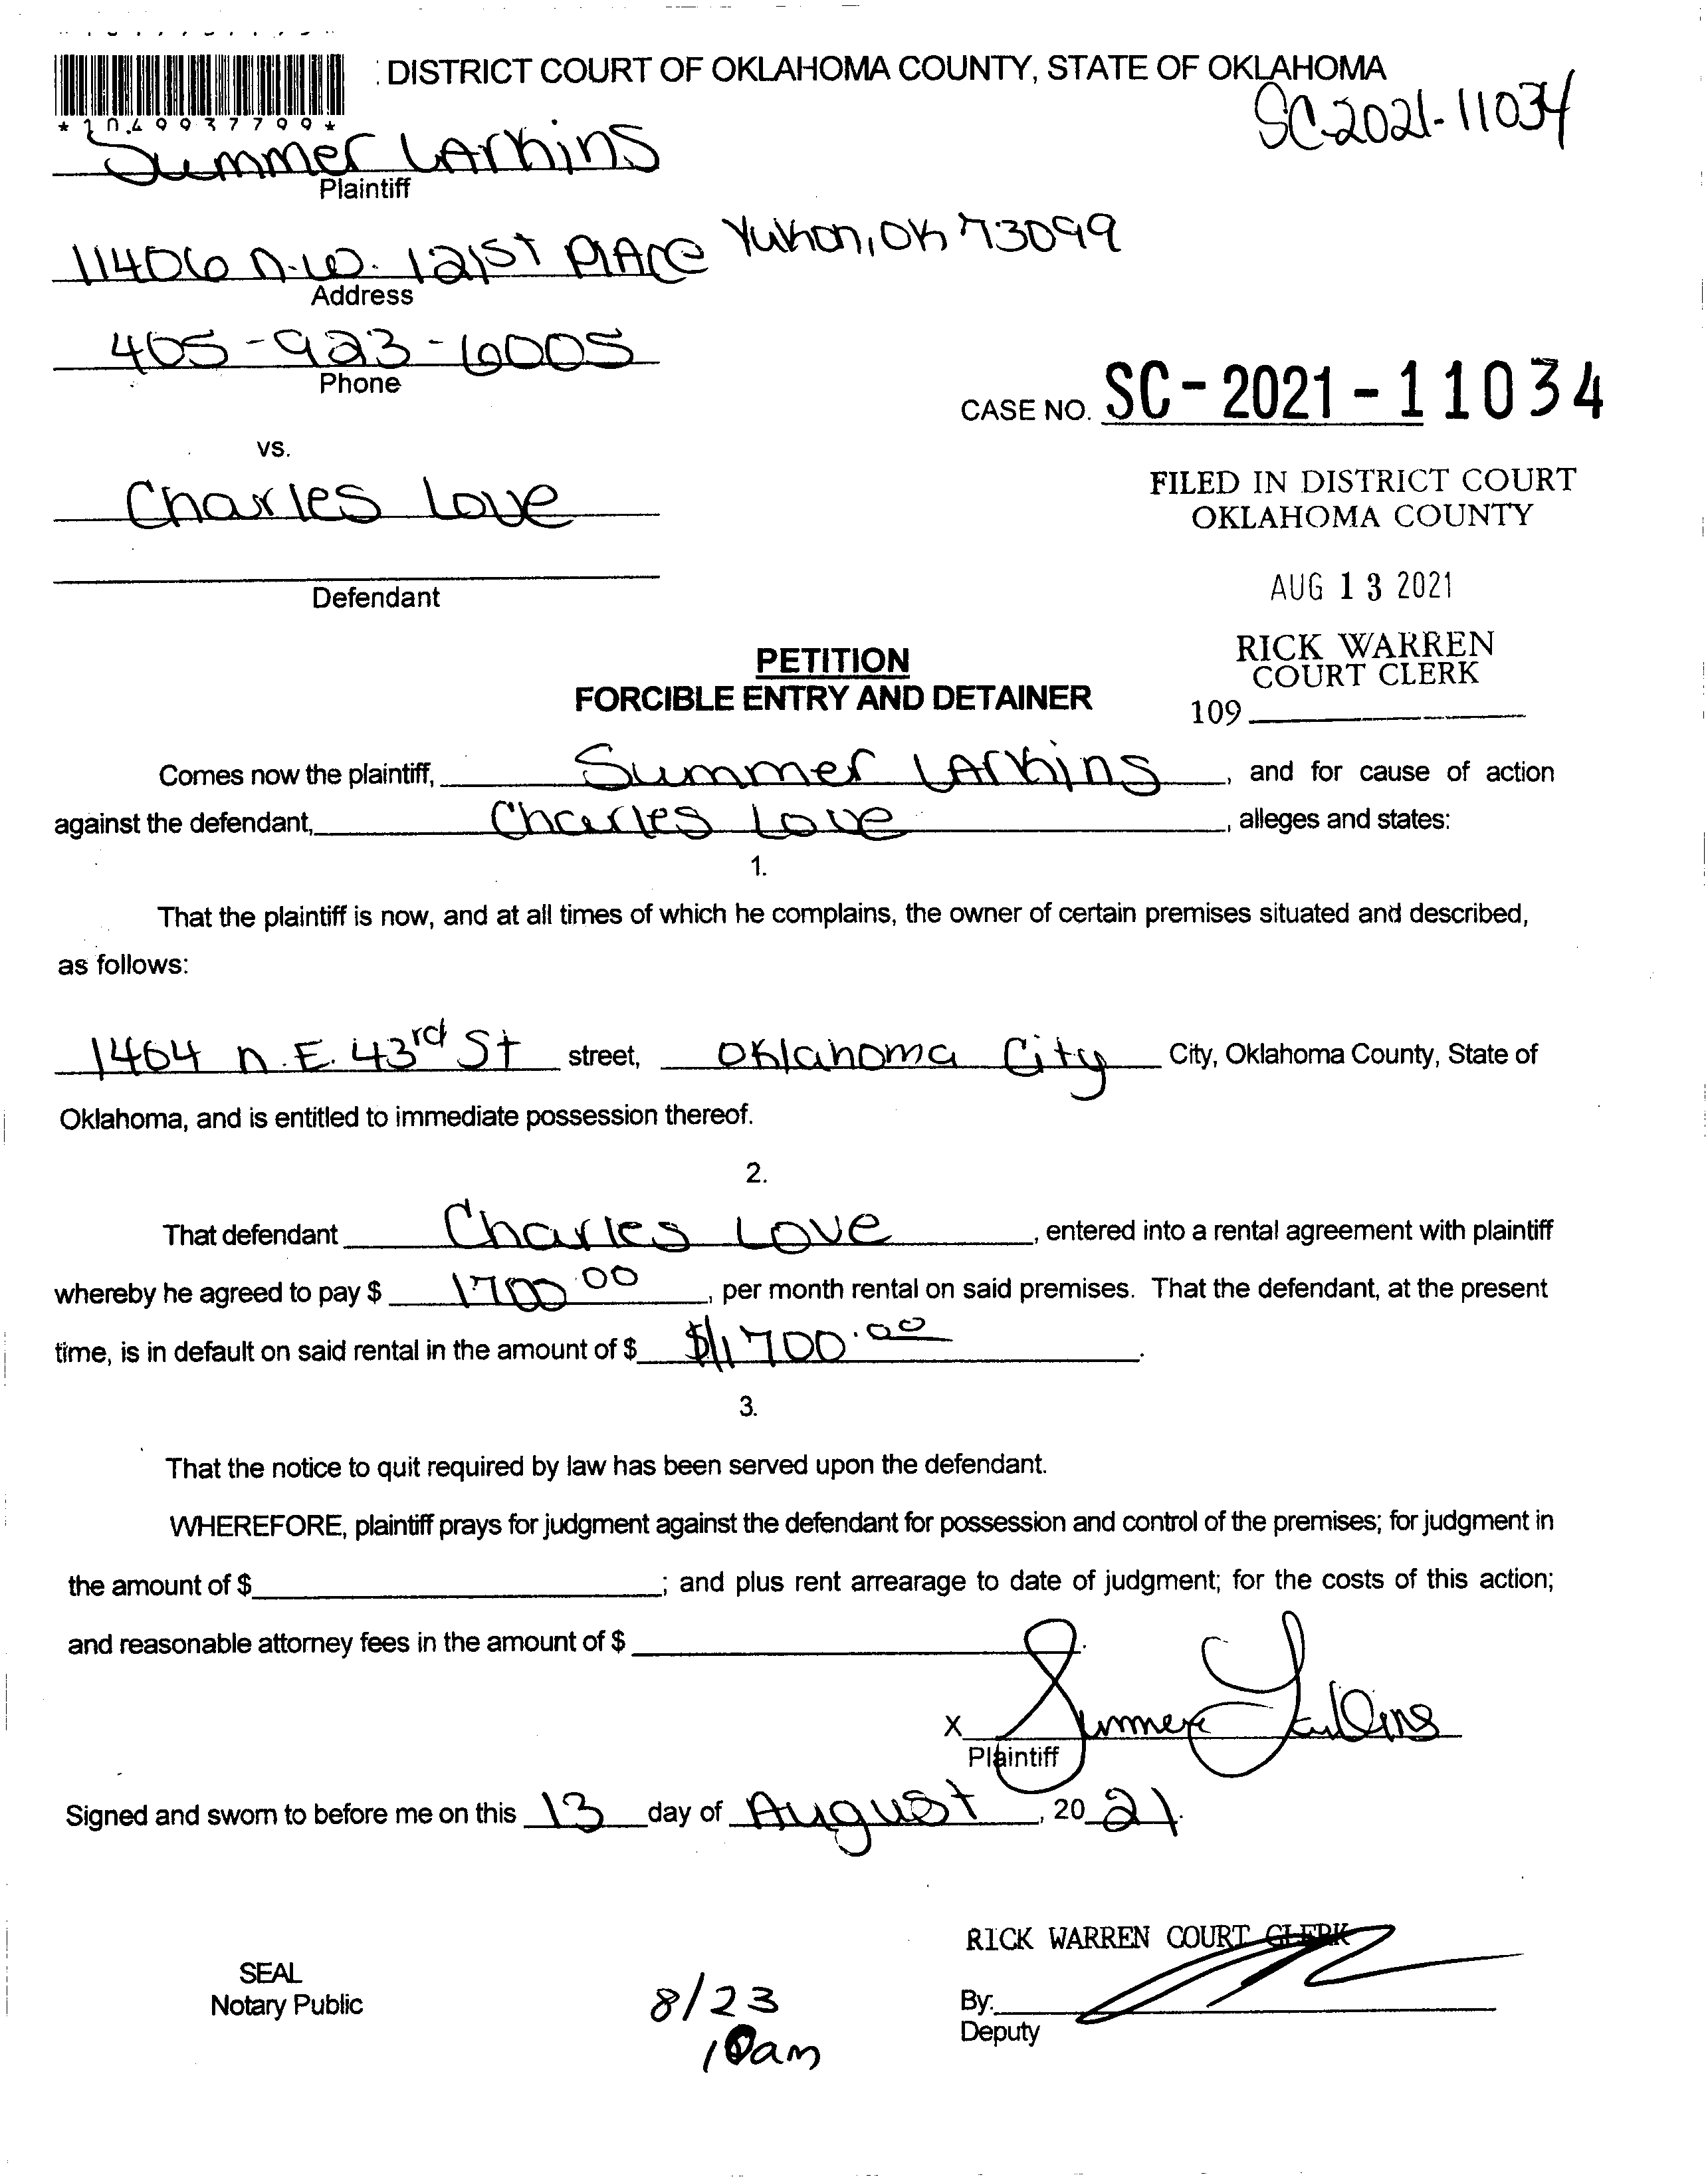 : DISTRICT COURT OF OKLAHOMA COUNTY, STATE OF OKLAHOMA
SC-2021-11034
* 1 0 4 9 9 3 7 7 9 9 *
Summer Larkins
Plaintiff
11406 N.W. 121st Place Yukon, OK 73099
Address
405-923-6005
Phone
CASE NO. SC-2021-11034
vs.
Charles Love
FILED IN DISTRICT COURT
OKLAHOMA COUNTY
Defendant
AUG 13 2021
RICK WARREN
COURT CLERK
109
PETITION
FORCIBLE ENTRY AND DETAINER
Comes now the plaintiff, Summer Larkins, and for cause of action
against the defendant, Charles Love, alleges and states:
1.
That the plaintiff is now, and at all times of which he complains, the owner of certain premises situated and described,
as follows:
1464 N.E. 43rd St street, Oklahoma City City, Oklahoma County, State of
Oklahoma, and is entitled to immediate possession thereof.
2.
That defendant Charles Love, entered into a rental agreement with plaintiff
whereby he agreed to pay $ 1700.00, per month rental on said premises. That the defendant, at the present
time, is in default on said rental in the amount of $ $1,700.00.
3.
That the notice to quit required by law has been served upon the defendant.
WHEREFORE, plaintiff prays for judgment against the defendant for possession and control of the premises; for judgment in
the amount of $ ; and plus rent arrearage to date of judgment; for the costs of this action;
and reasonable attorney fees in the amount of $ .
X Summer Larkins
Plaintiff
Signed and sworn to before me on this 13 day of August, 2021.
RICK WARREN COURT CLERK
SEAL
Notary Public
8/23
10am
By:
Deputy